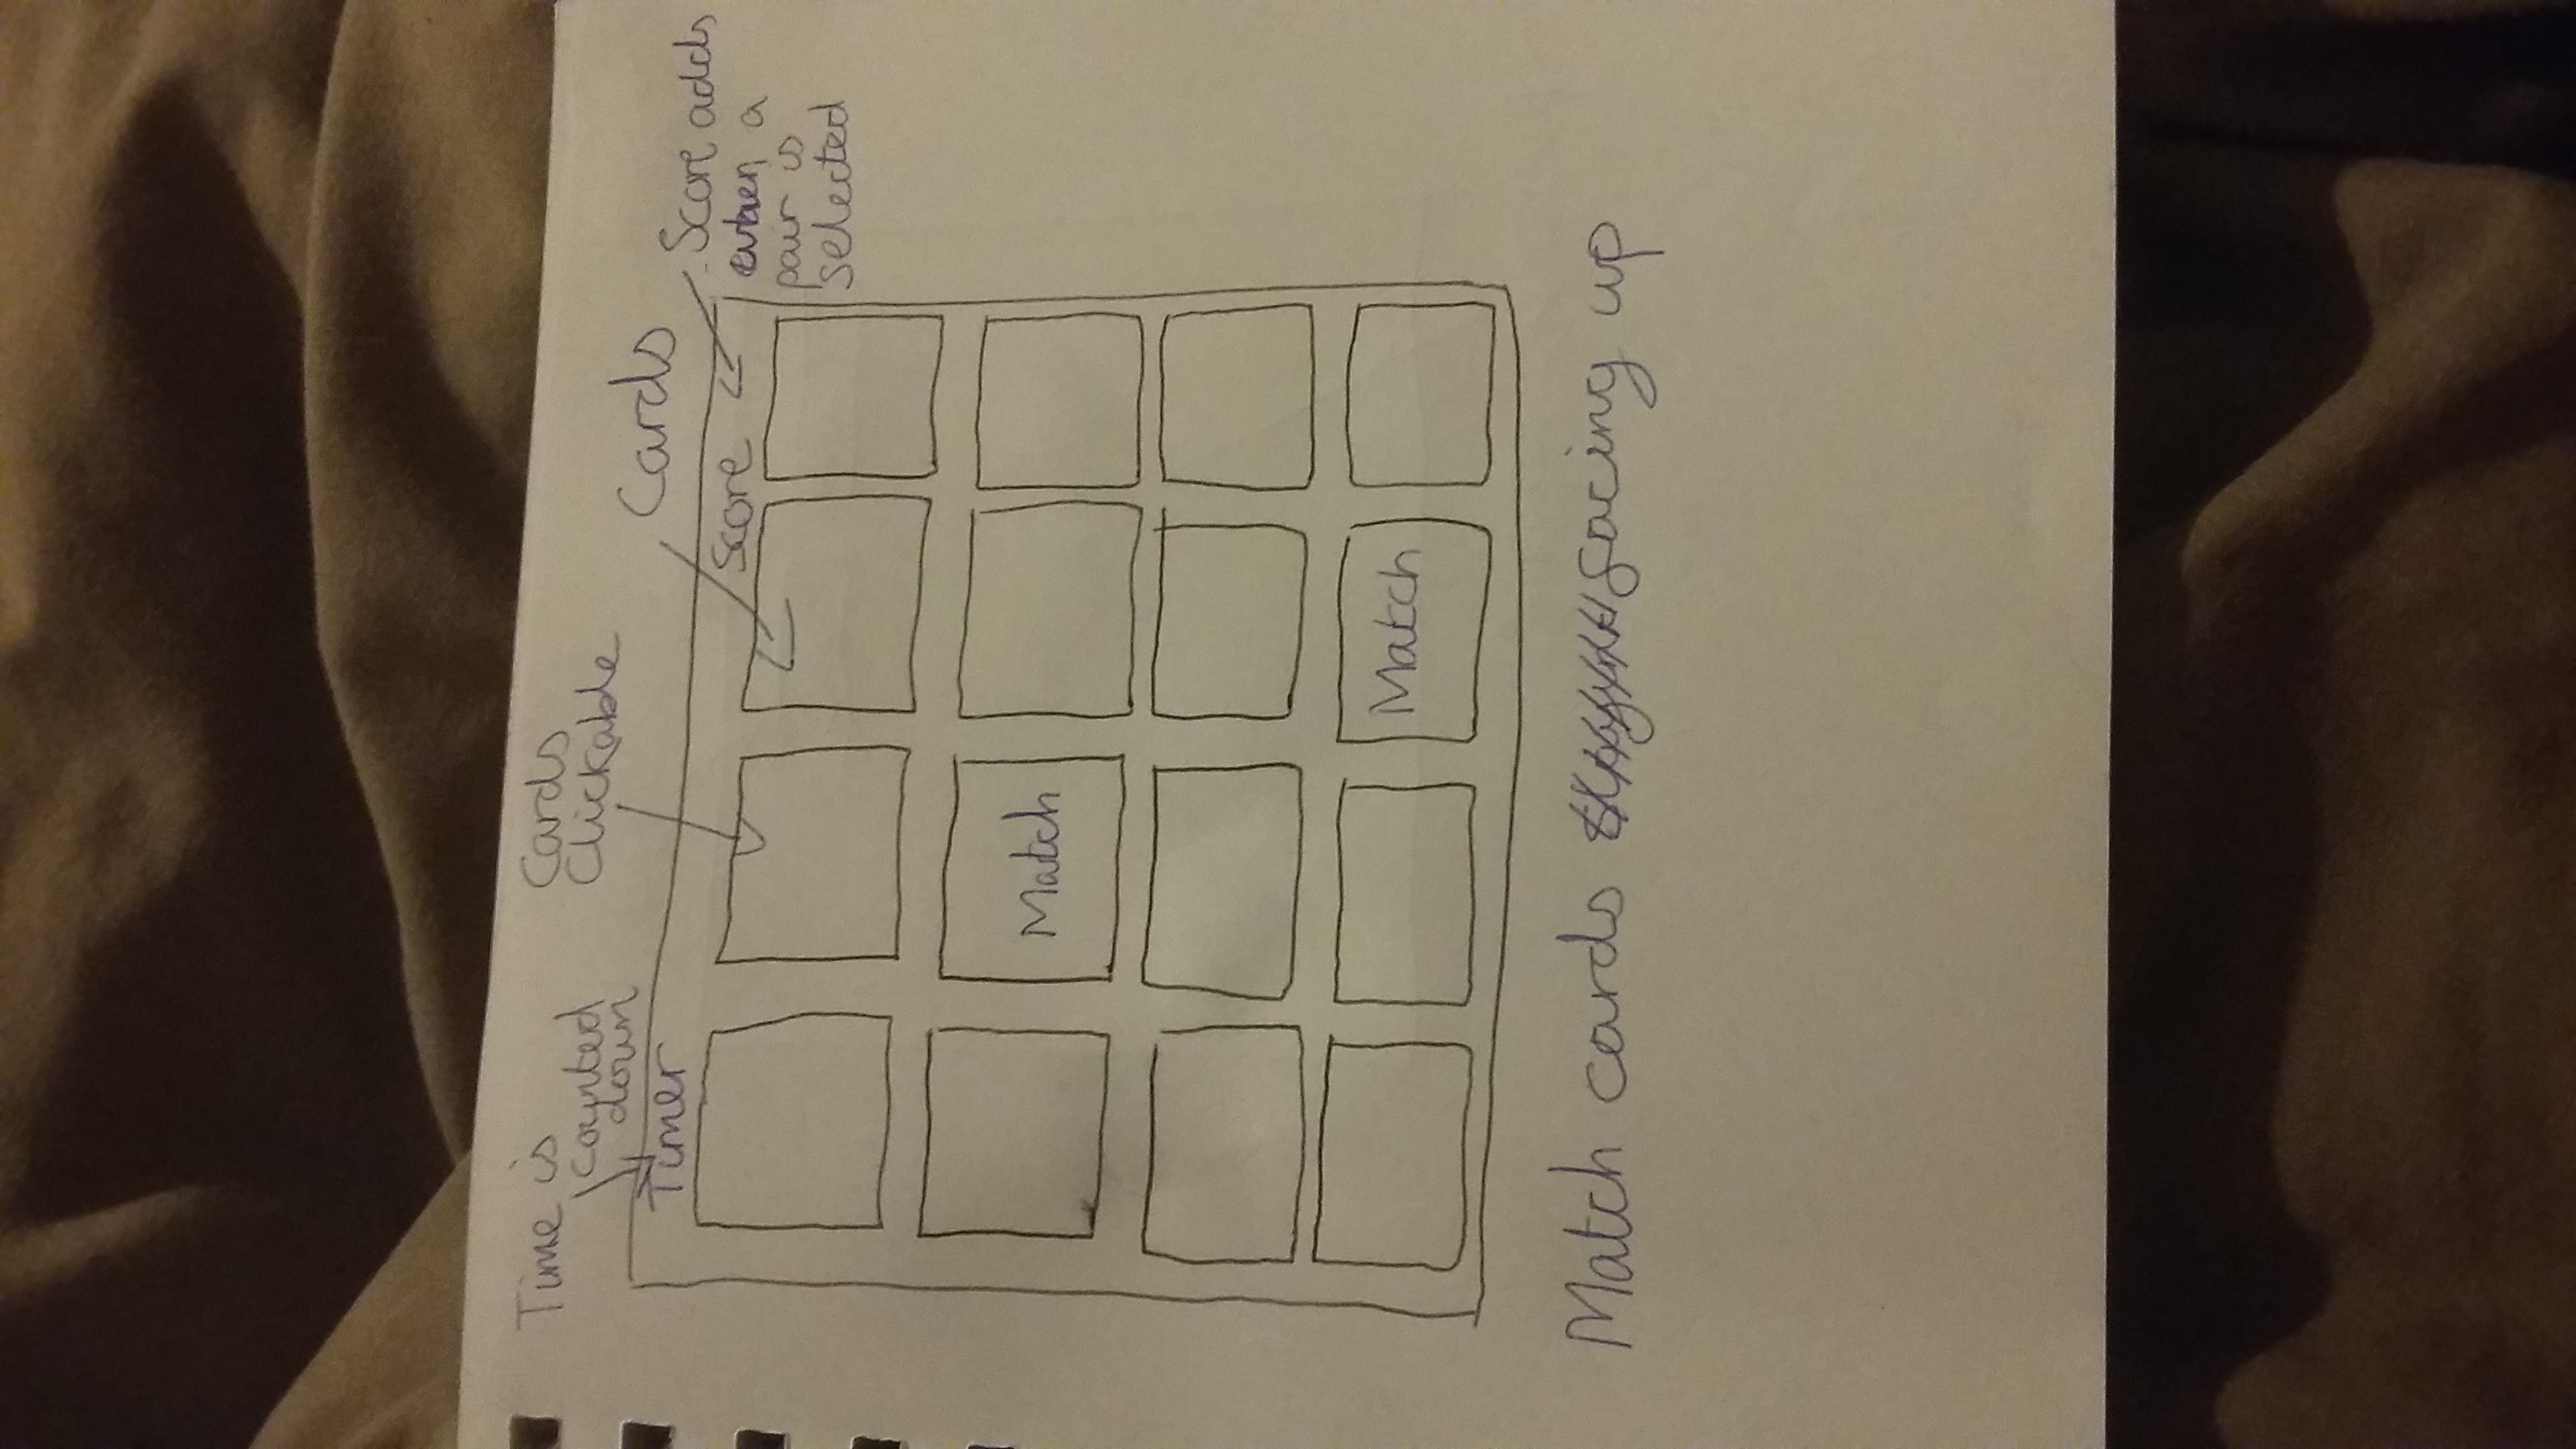 Time is
counted
down
Timer
Cards
Clickable
Cards
Score
Score adds
when a
pair is
selected
Match
Match
Match cards facing up